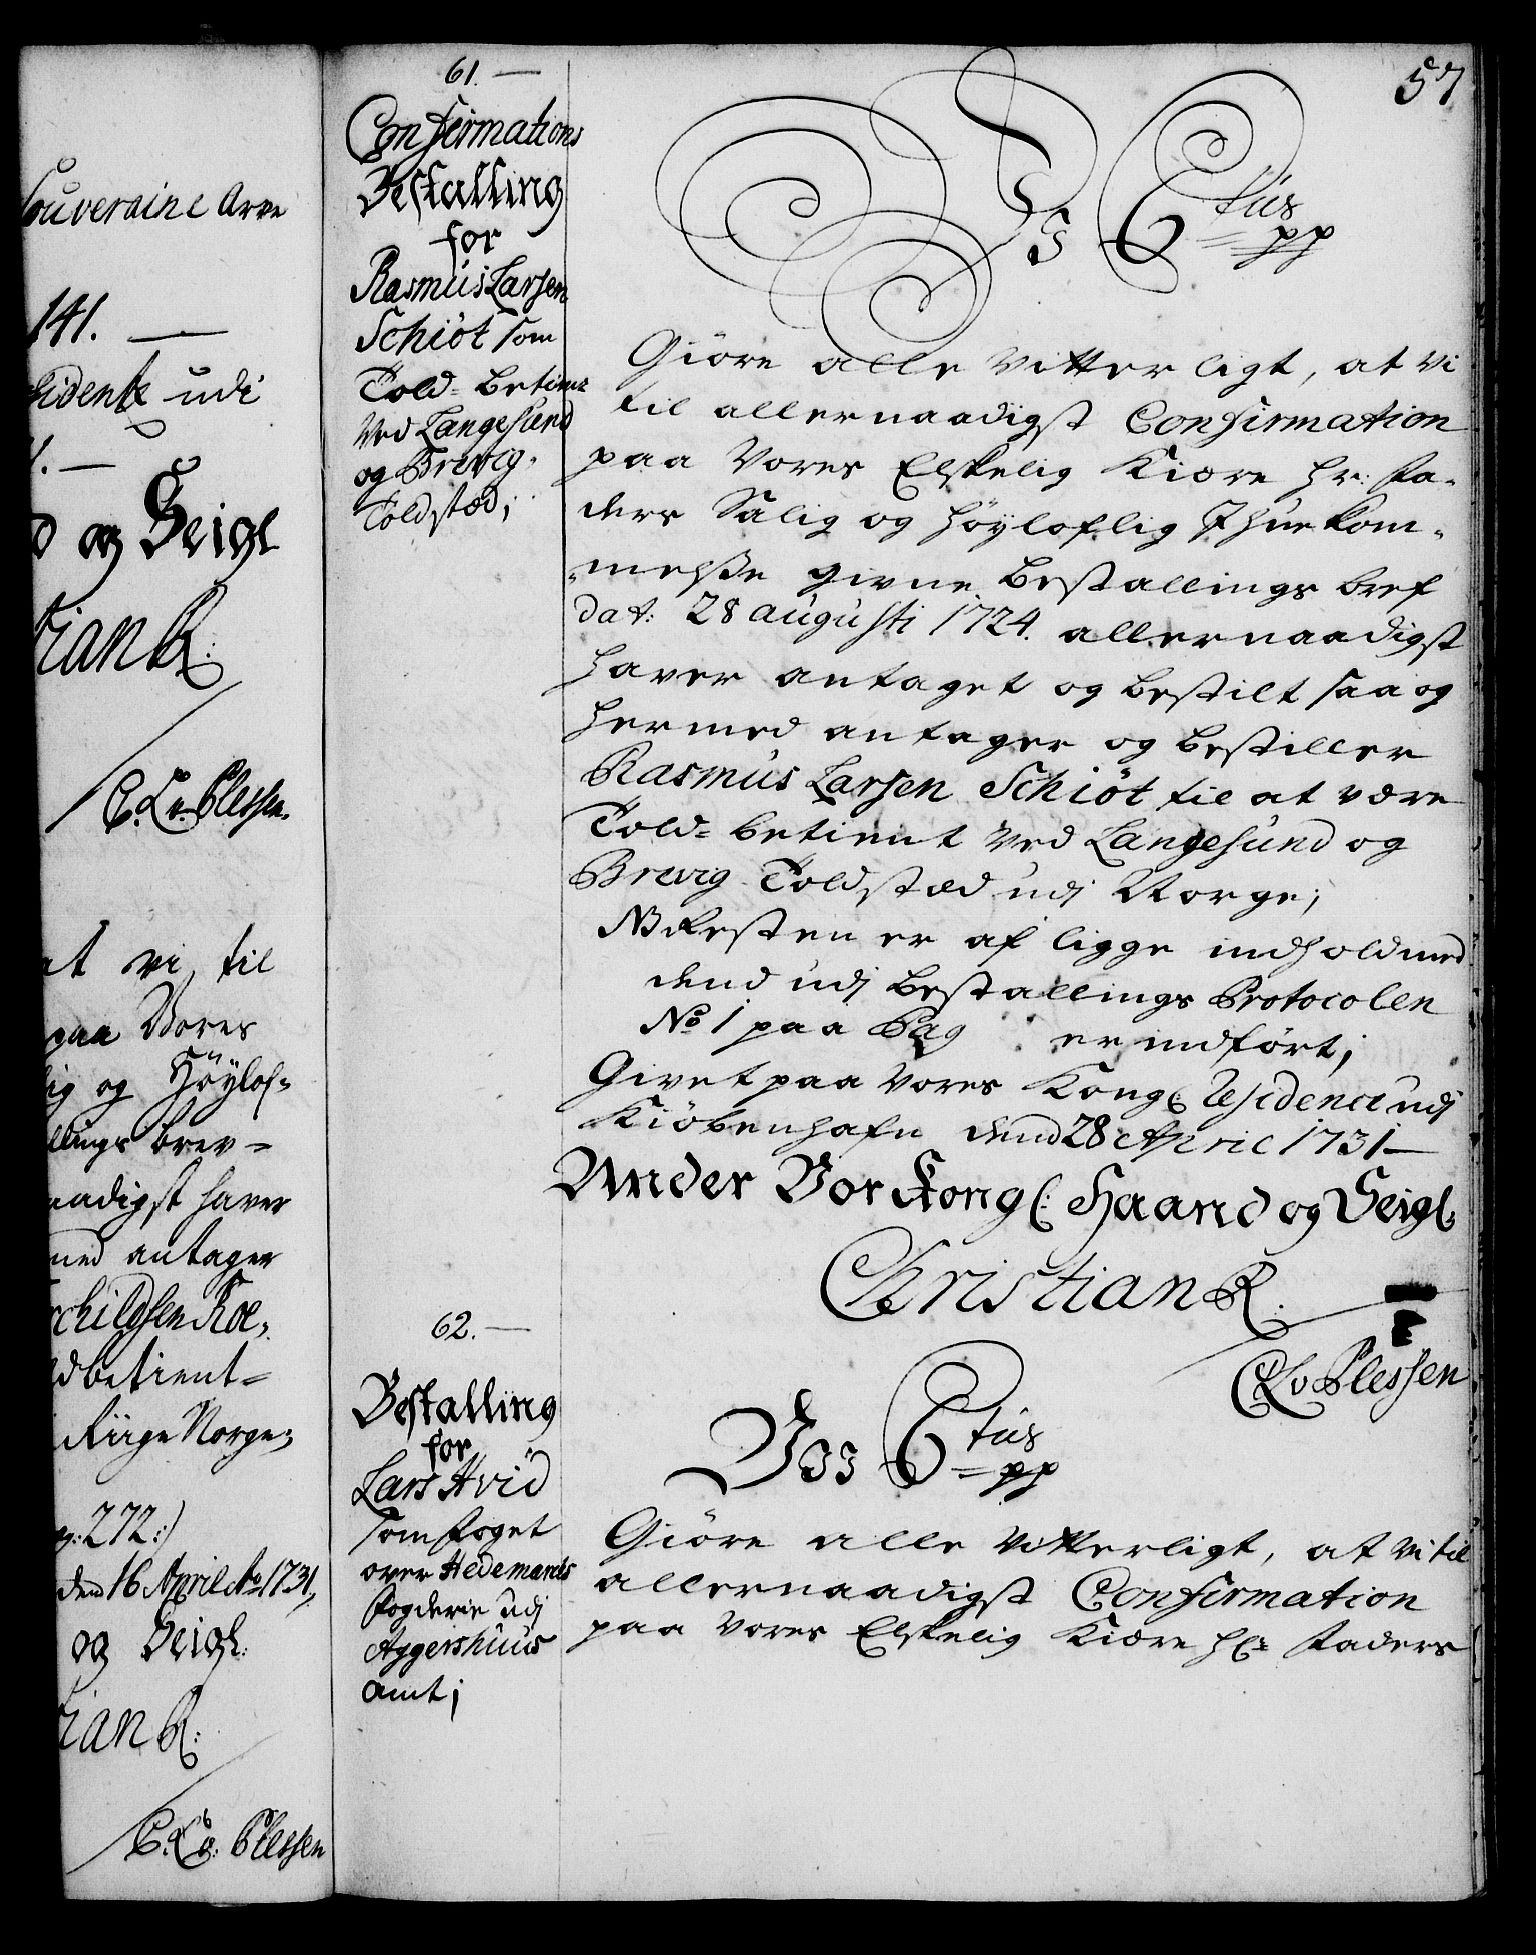 souveraine Arve
141. —
sidentz udi
. —
d og Seigl
tian R.
C. L. v. Plessen.
at vi til
paa Vores
lig og Höylof=
llings brev =
naadigst haver
med antager
schildsen Roe,
dbetient =
Riige Norge;
g: 272:)
den 16 April Ao 1731,
og Seigl:
tian R:
C. L. v. Plessen
57
61. —
Confirmations
Bestalling
for
Rasmus Larsen
Schiöt som
Told=betient
Ved Langesund
og Brevig.
Toldstæd;
Vi C tus
pp
Giöre alle vitterligt, at Vi
til allernaadigst Confirmation
paa Vores Elskelig Kiære Hr: Fa-
ders Salig og Höyloflig Ihuekom-
-melsse givne Bestallings bref
dat: 28 augusti 1724. allernaadigst
haver antaget og bestilt saa og
hermed antager og bestiller
Rasmus Larsen Schiöt til at være
Told=betient Ved Langesund og
Brevig Toldstæd udj Norge;
NB Resten er af ligge indhold med
dend udj Bestallings Protocolen
No 1 paa Pag er indfört;
Givet paa Vores Kongl: Residence udj
Kiöbenhafn dend 28 April 1731 —
Under Vor Kongl: Haand og Seigl:
Christian R.
C L v Plessen
62. —
Bestalling
for
Lars Hvid
som foget
over Hedemarks
fogderie udj
Aggershuus
amt;
Vi C tus
pp
Giöre alle vitterligt, at Vi til
allernaadigst Confirmation
paa Vores Elskelig Kiære Hr: Faders